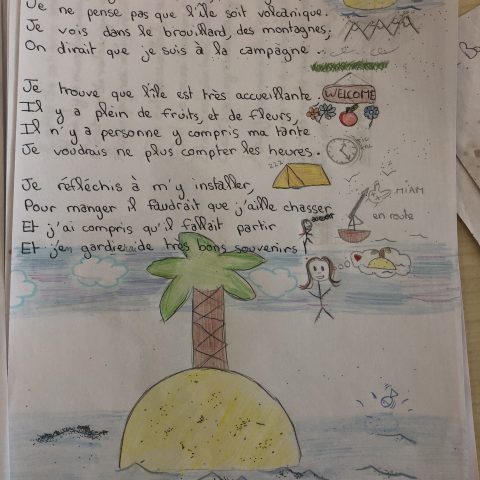 Je ne pense pas que l'île soit volcanique.
Je vois dans le brouillard, des montagnes,
On dirait que je suis à la campagne.
Je trouve que l'île est très accueillante.
WELCOME
Il y a plein de fruits, et de fleurs,
Il n'y a personne y compris ma tante
Je voudrais ne plus compter les heures.
zzz
Je réfléchis à m'y installer,
MIAM
Pour manger il faudrait que j'aille chasser
en route
Et j'ai compris qu'il fallait partir
Et j'en garderai de très bons souvenirs